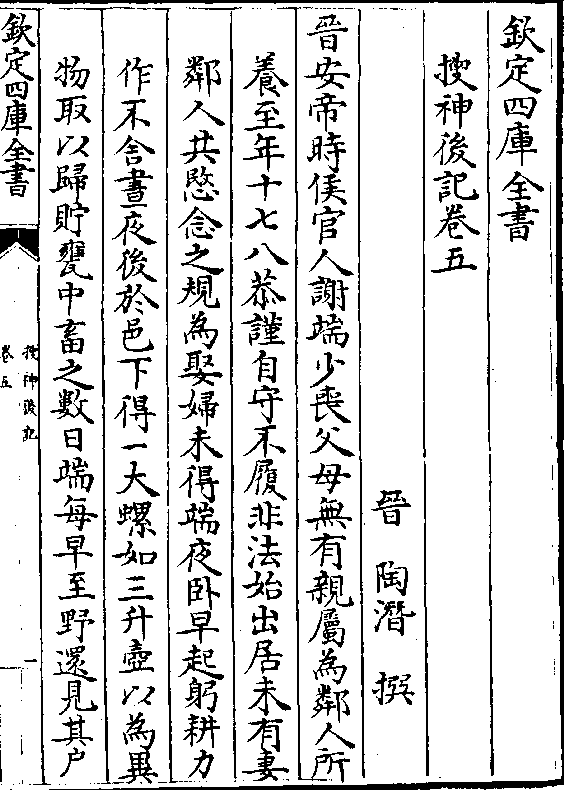 欽定四庫全書
搜神後記卷五
晉 陶潛 撰
晉安帝時侯官人謝端少喪父母無有親屬為鄰人所
養至年十七八恭謹自守不履非法始出居未有妻
鄰人共愍念之規為娶婦未得端夜卧早起躬耕力
作不舍晝夜後於邑下得一大螺如三升壺以為異
物取以歸貯甕中畜之數日端每早至野還見其户
欽定四庫全書
搜神後記
卷五
一